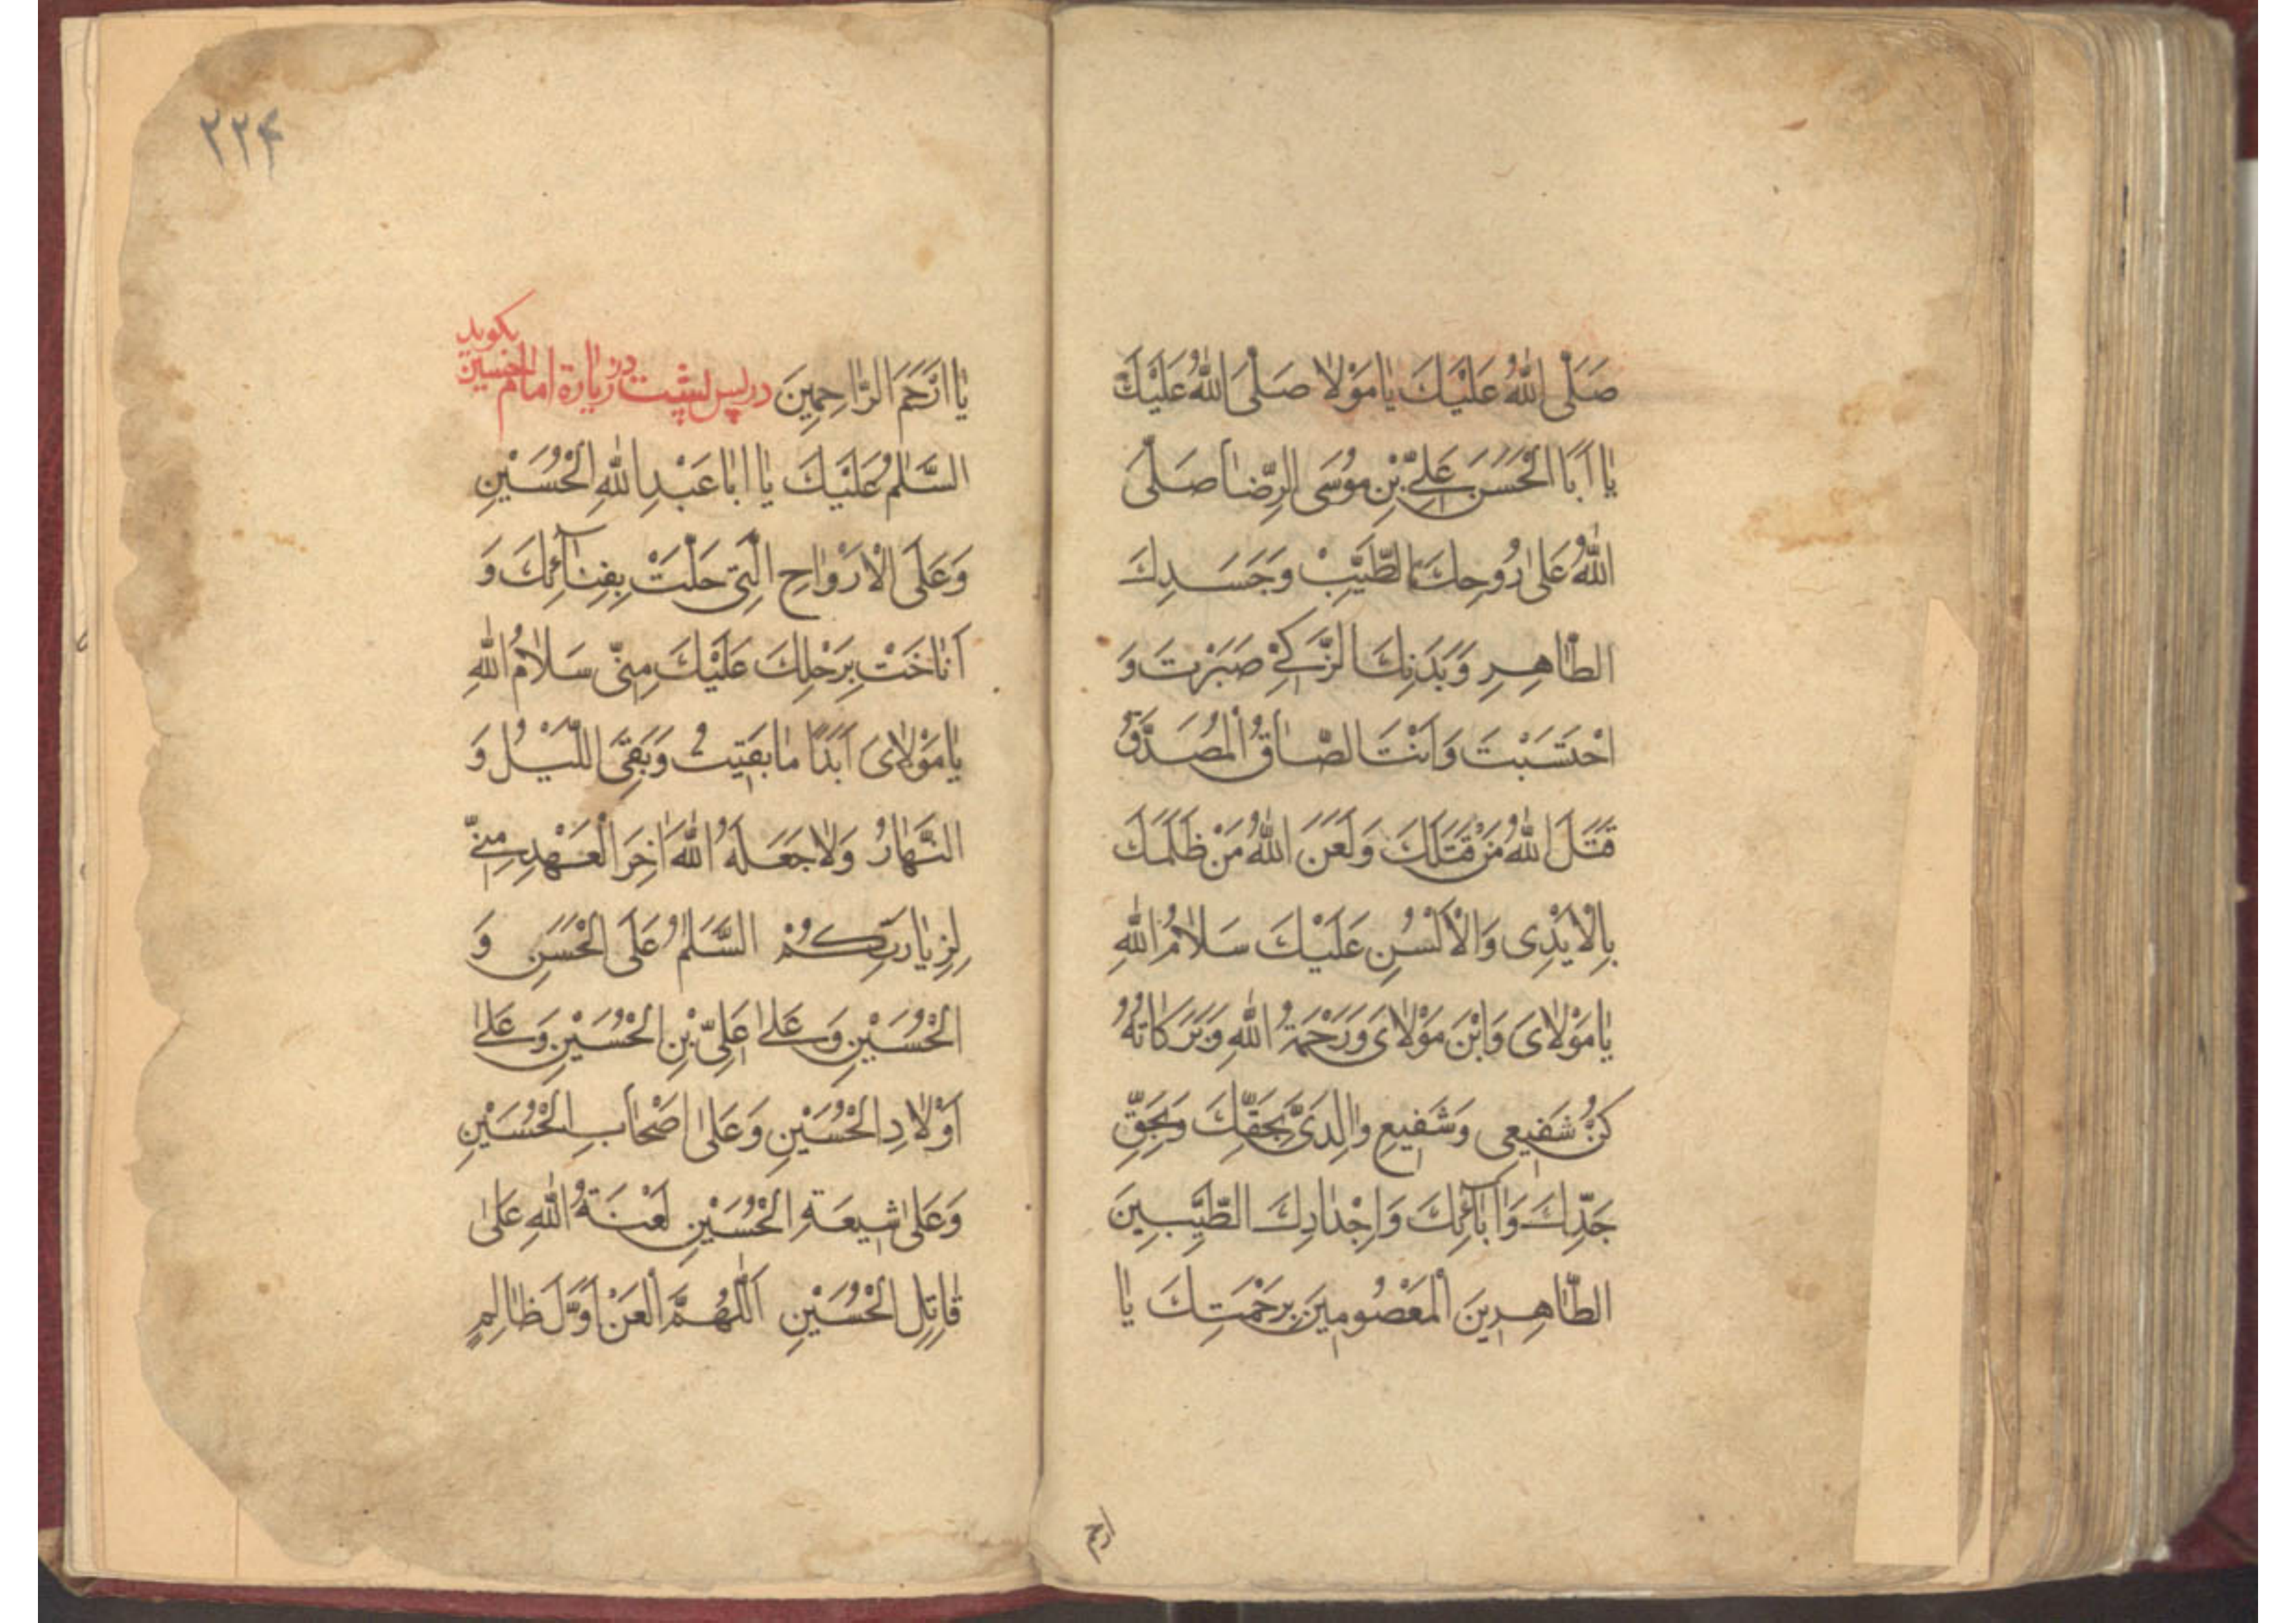 صَلَّى اللهُ عَلَيْكَ يٰا مَوْلٰا صَلَّى اللهُ عَلَيْكَ
يٰا اَبَا الْحَسَنَ عَلِىِّ بْنِ مُوسَى الرِّضٰا صَلَّى
اللهُ عَلىٰ رُوحِكَ الطَّيِّبْ وَجَسَدِكَ
الطّٰاهِرِ وَبَدَنِكَ الزَّكِىْ صَبَرْتَ وَ
احْتَسَبْتَ وَاَنْتَ الصّٰاقُ الْمُصَدَّقُ
قَتَلَ اللهُ مَنْ قَتَلَكَ وَلَعَنَ اللهُ مَنْ ظَلَمَكَ
بِالْاَيْدِى وَالْاَلْسُنِ عَلَيْكَ سَلٰامُ اللهِ
يٰا مَوْلٰاىَ وَابْنَ مَوْلٰاىَ وَرَحْمَةُ اللهِ وَبَرَكاتُهُ
كُنْ شَفيعِى وَشَفيعِ وٰالِدَىَّ بِحَقِّكَ وَبِحَقِّ
جَدِّكَ وَاٰبٰائِكَ وَاِجْدٰادِكَ الطَّيِّبِينَ
الطّٰاهِرِينَ الْمَعْصُومِينَ بِرَحْمَتِكَ يٰا
ارحم
۲۲۴
يٰا اَرْحَمَ الرّٰاحِمِينَ در پس پشت در زيارة امام الحسين بكويد
السَّلٰمُ عَلَيْكَ يٰا اَبٰا عَبْدِ اللهِ الْحُسَيْنِ
وَعَلَى الْاَرْوٰاحِ الَّتِى حَلَّتْ بِفِنٰآئِكَ وَ
اَنٰاخَتْ بِرَحْلِكَ عَلَيْكَ مِنّى سَلٰامُ اللهِ
يٰا مَوْلٰاىَ اَبَدًا مٰا بَقيتُ وَبَقِىَ اللَّيْلُ وَ
النَّهٰارُ وَلٰا جَعَلَهُ اللهُ اٰخِرَ الْعَهْدِ مِنّى
لِزِيٰارَتِكُمْ السَّلٰمُ عَلَى الْحَسَنِ وَ
الْحُسَيْنِ وَعَلىٰ عَلِىِّ بْنِ الْحُسَيْنِ وَعَلىٰ
اَوْلٰادِ الْحُسَيْنِ وَعَلىٰ اَصْحٰابِ الْحُسَيْنِ
وَعَلىٰ شيعَةِ الْحُسَيْنِ لَعْنَةُ اللهِ عَلىٰ
قٰاتِلِ الْحُسَيْنِ اَللّٰهُمَّ الْعَنْ اَوَّلَ ظٰالِمٍ